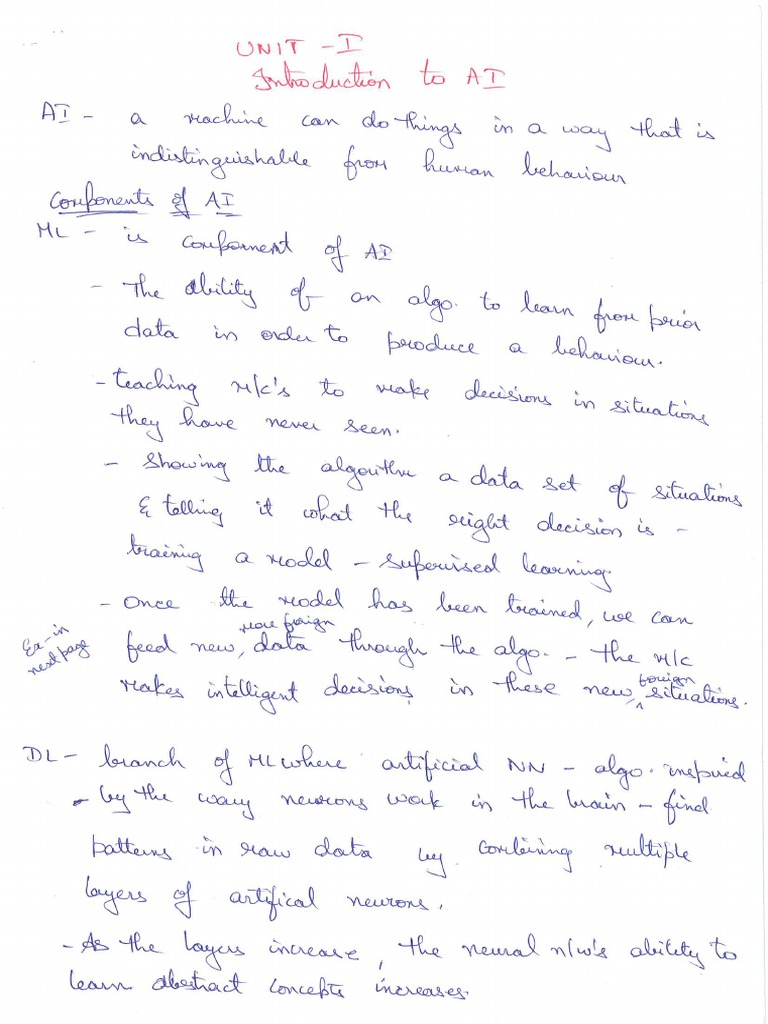 UNIT - I
Introduction to AI
AI - a machine can do things in a way that is
indistinguishable from human behaviour
Components of AI
ML - is component of AI
- The ability of an algo. to learn from prior
data in order to produce a behaviour.
- teaching m/c's to make decisions in situations
they have never seen.
- Showing the algorithm a data set of situations
& telling it what the right decision is -
training a model - supervised learning.
- Once the model has been trained, we can
more foreign
feed new, data through the algo. - the m/c
Ex - in
next page
foreign
makes intelligent decisions in these new situations.
DL - branch of ML where artificial NN - algo. inspired
- by the way neurons work in the brain - find
patterns in raw data by combining multiple
layers of artifical neurons.
- As the layers increase, the neural n/w's ability to
learn abstract concepts increases.